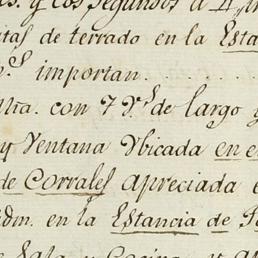 y los segundos a 4
de terrado en la Esta
importan
con 7 v.s de largo y
y Ventana Vbicada en e
de Corrales apreciada e
Idm. en la Estancia de
Sala y Cocina, y